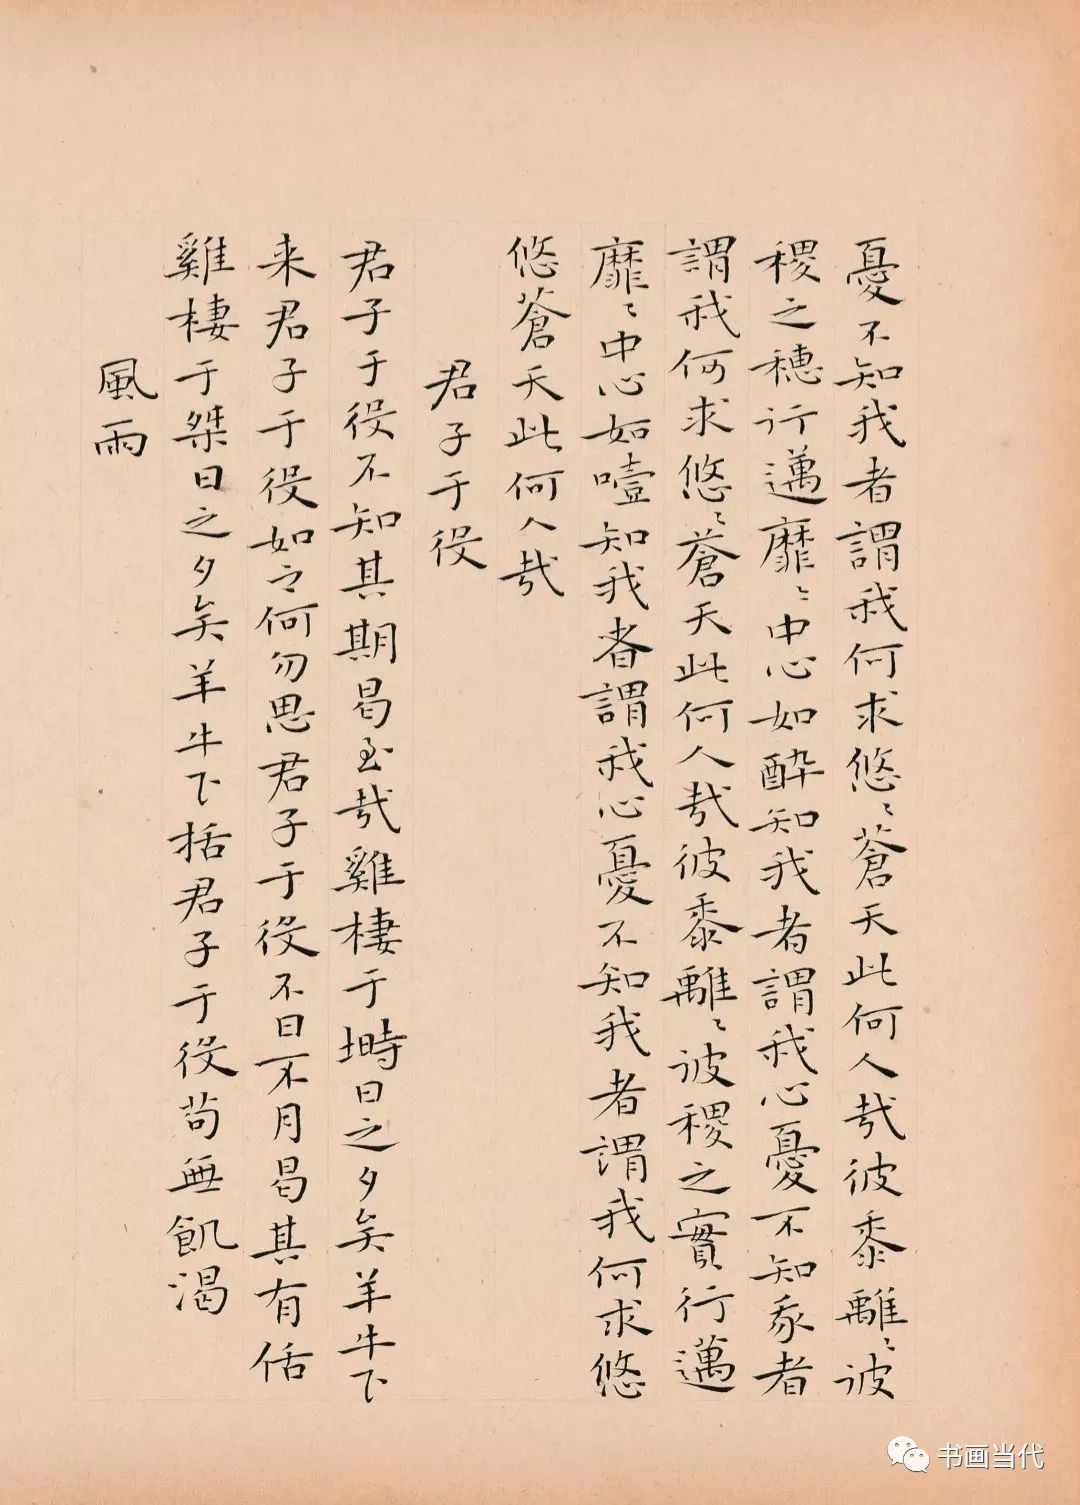 憂不知我者謂我何求悠〻蒼天此何人哉彼黍離〻彼
稷之穗行邁靡〻中心如醉知我者謂我心憂不知我者
謂我何求悠〻蒼天此何人哉彼黍離〻彼稷之實行邁
靡〻中心如噎知我者謂我心憂不知我者謂我何求悠
悠蒼天此何人哉
君子于役
君子于役不知其期曷至哉雞棲于塒日之夕矣羊牛下
来君子于役如之何勿思君子于役不日不月曷其有佸
雞棲于桀日之夕矣羊牛下括君子于役苟無飢渴
風雨
书画当代